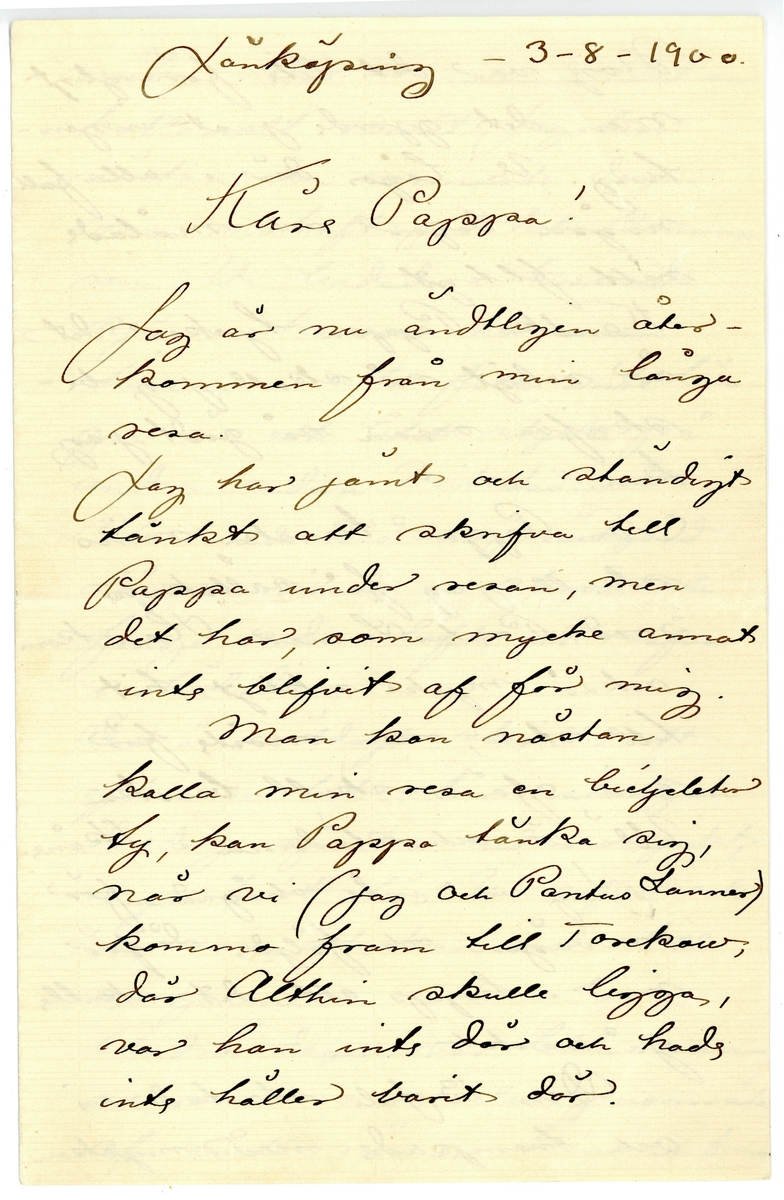 Jönköping - 3-8-1900.
Käre Pappa!
Jag är nu ändtligen åter-
kommen från min långa
resa.
Jag har jämt och ständigt
tänkt att skrifva till
Pappa under resan, men
det har, som mycke annat
inte blifvit af för mig.
Man kan nästan
kalla min resa en
ty, kan Pappa tänka sig,
når vi (jag och Pontus Lanner)
kommo fram till Torekow,
där Althin skulle ligga,
var han inte där och hade
inte håller varit där.